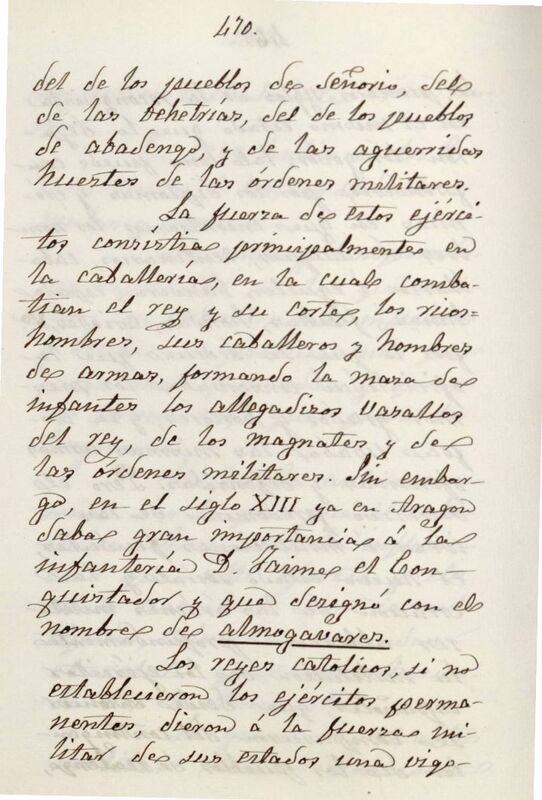 470.
del de los pueblos de señorio, del
de las behetrías, del de los pueblos
de abadengo, y de las aguerridas
huestes de las órdenes militares.
La fuerza de estos ejérci-
tos consistia principalmente en
la caballería, en la cual comba-
tian el rey y su corte, los ricos=
hombres, sus caballeros y hombres
de armas, formando la masa de
infantes los allegadizos vasallos
del rey, de los magnates y de
las órdenes militares. Sin embar-
go, en el siglo XIII ya en Aragon
daba gran importancia á la
infantería D. Jaime el Con-
quistador y que designó con el
nombre de almogavares.
Los reyes catolicos, si no
establecieron los ejércitos perma-
nentes, dieron á la fuerza mi-
litar de sus estados una vigo-